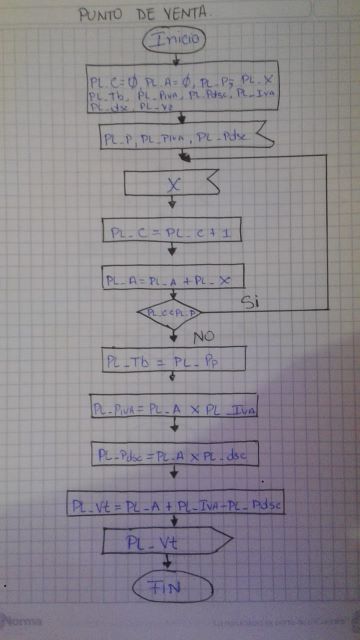 PUNTO DE VENTA.
Inicio
PL_C=Ø, PL_A=Ø, PL_P, PL_X
PL_Tb, PL_PIVA, PL_Pdsc, PL_IVA
PL_dsc, PL_Vt
PL_P, PL_PIVA, PL_Pdsc
X
PL_C = PL_C + 1
PL_A = PL_A + PL_X
PL_C<PL_P
Si
NO
PL_Tb = PL_Pp
PL_PIVA = PL_A X PL_IVA
PL_Pdsc = PL_A X PL_dsc
PL_Vt = PL_A + PL_IVA-PL_Pdsc
PL_Vt
FIN
Norma